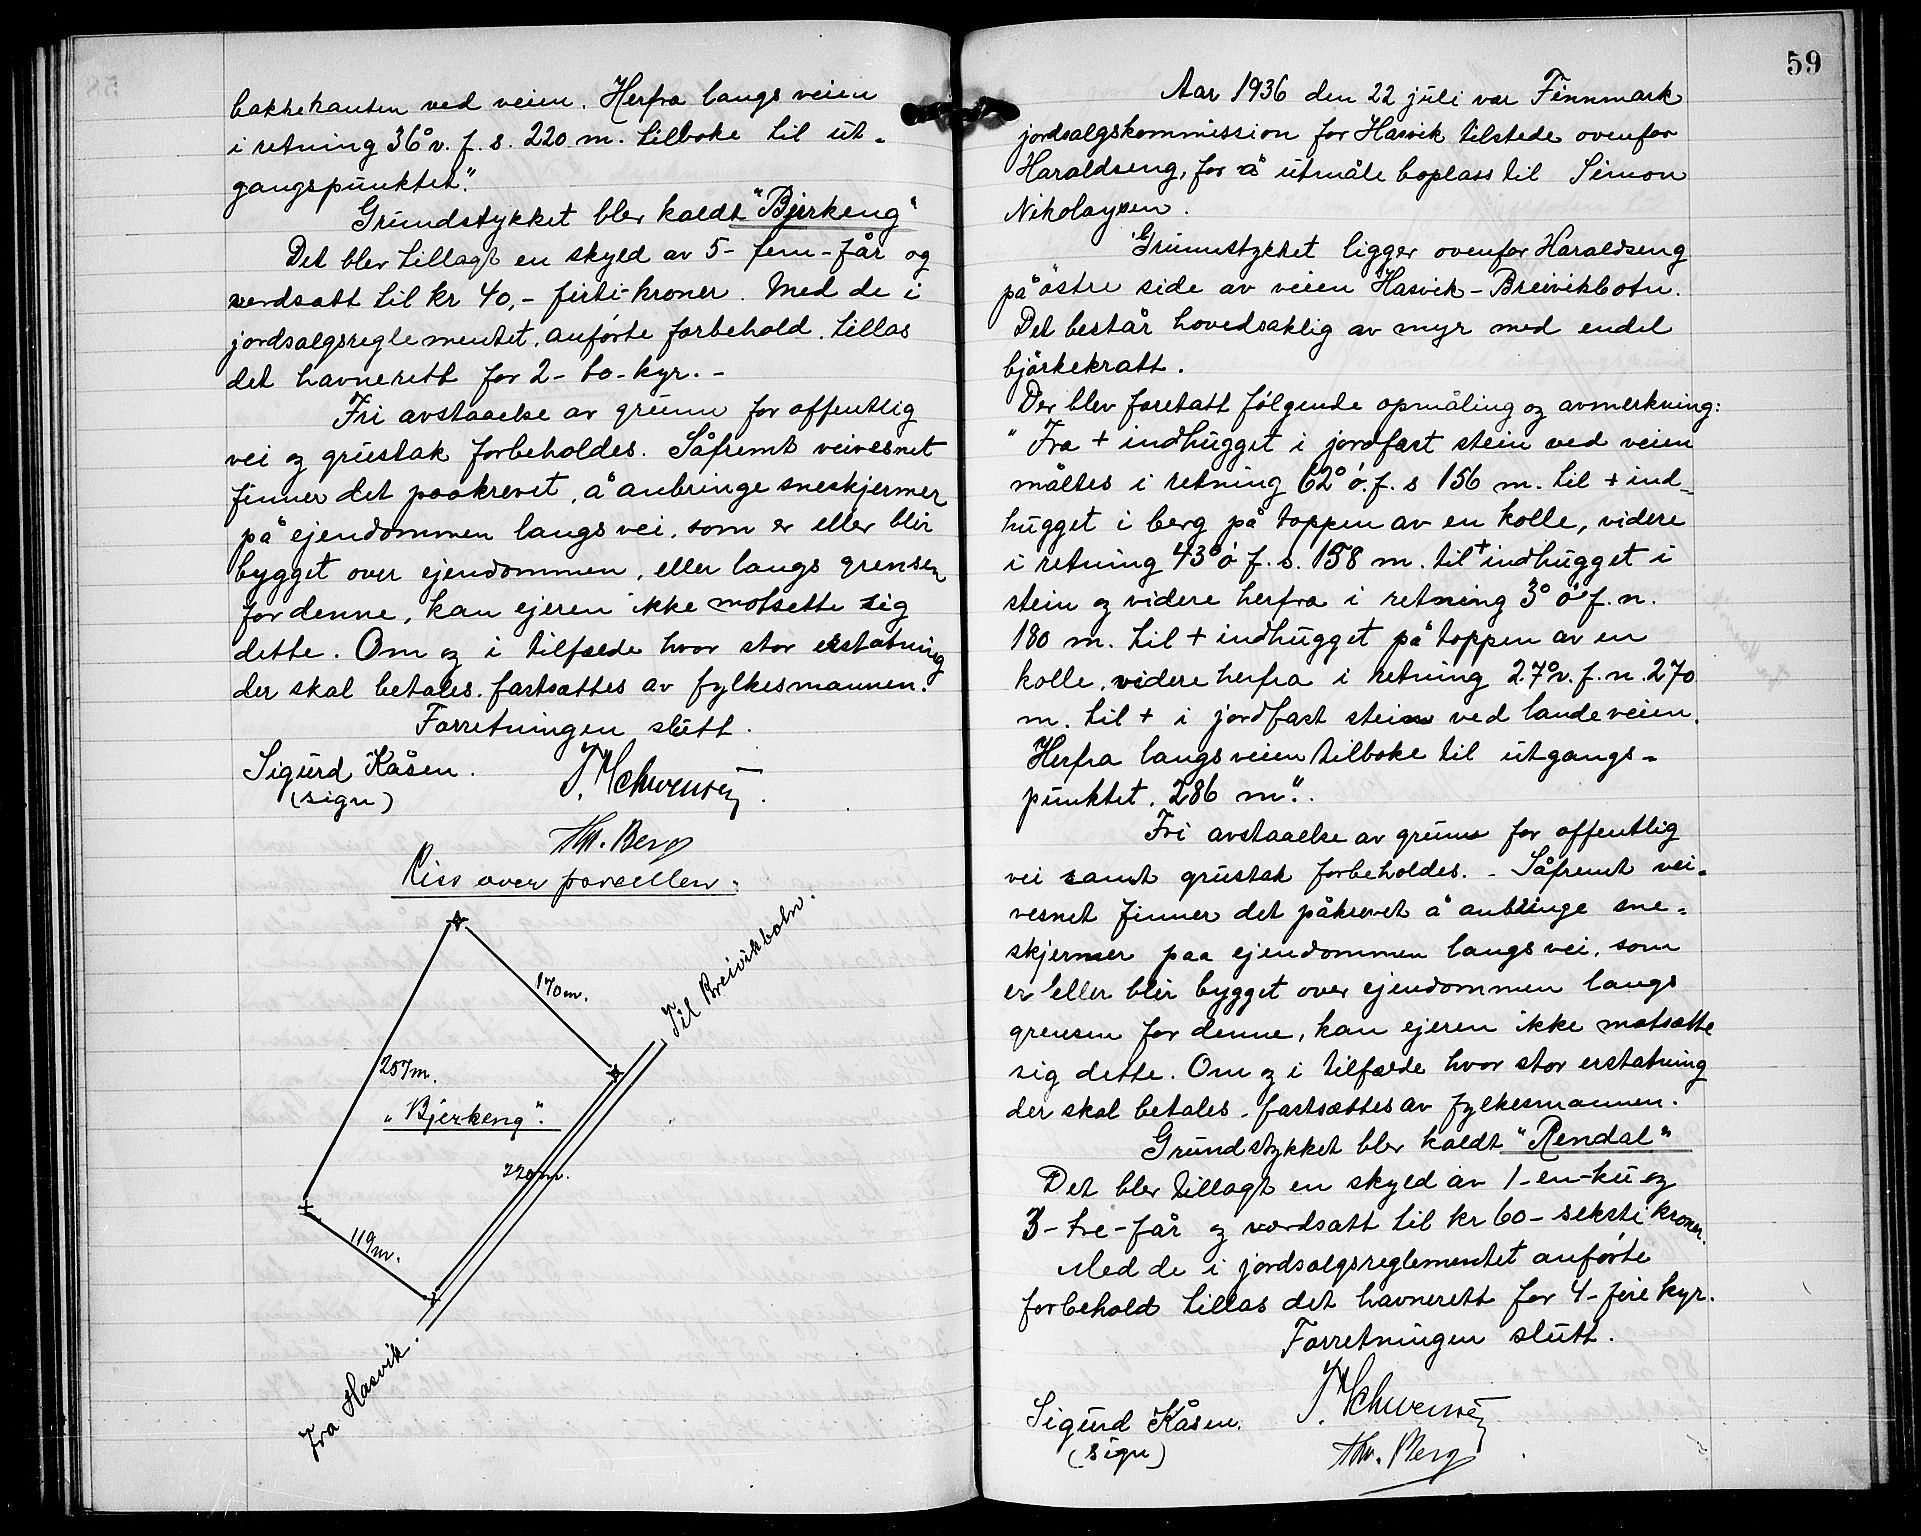 bakkekanten ved veien. Herfra langs veien
i retning 36° v. f. s. 220 m. tilbake til ut-
gangspunktet."
Grundstykket blev kaldt "Bjerkeng"
Det blev tillagt en skyld av 5- fem-får og
verdsatt til kr 40,- firti-kroner. Med de i
jordsalgsreglementet anførte forbehold, tillas
det havnerett for 2- to-kyr. -
Fri avstaaelse av grunn for offentlig
vei og grustak forbeholdes. Såfremt veivesnet
finner det paakrevet, å anbringe sneskjermer
på ejendommen langs vei, som er eller blir
bygget over ejendommen, eller langs grensen
for denne, kan ejeren ikke motsette sig
dette. Om og i tilfælde hvor stor erstatning
der skal betales, fastsættes av fylkesmannen.
Forretningen slutt.
Sigurd Kåsen.
(sign)
Th. Berg
Riss over parcellen.
Til Breivikbotn.
170 m.
207 m.
"Bjerkeng".
220 m.
119 m.
Fra Hasvik.
59
Aar 1936 den 22 juli var Finnmark
jordsalgskommission for Hasvik tilstede ovenfor
Haraldseng, for å utmåle boplass til Simon
Nikolaysen.
Grunnstykket ligger ovenfor Haraldseng
på östre side av veien Hasvik - Breivikbotn.
Det består hovedsaklig av myr med endel
björkekratt.
Der blev foretatt følgende opmåling og avmerkning:
"Fra + indhugget i jordfast stein ved veien
måltes i retning 62° ö. f. s 156 m. til + ind-
hugget i berg på toppen av en kolle, videre
i retning 43° ö f. s. 158 m. til + indhugget i
stein og videre herfra i retning 3° ö f. n.
180 m. til + indhugget på toppen av en
kolle, videre herfra i retning 27° v. f. n. 270
m. til + i jordfast stein ved landeveien.
Herfra langs veien tilbake til utgangs-
punktet, 286 m".
Fri avstaaelse av grunn for offentlig
vei samt grustak forbeholdes. - Såfremt vei-
vesnet finner det påkrevet å anbringe sne-
skjermer paa ejendommen langs vei, som
er eller blir bygget over ejendommen langs
grensen for denne, kan ejeren ikke motsætte
sig dette. Om og i tilfælde hvor stor erstatning
der skal betales, fastsættes av fylkesmannen.
Grundstykket blev kaldt "Rendal"
Det blev tillagt en skyld av 1-en-ku og
3-tre-får og værdsatt til kr 60- seksti kroner.
Med de i jordsalgsreglementet anförte
forbehold tillas det havnerett for 4-fire kyr.
Forretningen slutt.
Sigurd Kåsen.
(sign)
Th. Berg